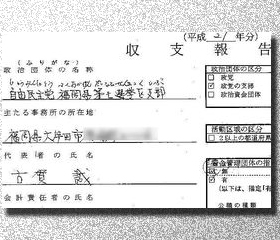 (平成21年分)
収支報告
(ふりがな)
政治団体の名称
自由民主党福岡県第七選挙区支部
主たる事務所の所在地
福岡県大牟田市
代表者の氏名
古賀 誠
会計責任者の氏名
政治団体の区分
□ 政党
☑ 政党の支部
□ 政治資金団体
活動区域の区分
□ 2以上の都道府県
資金管理団体の指
無
有
(以下は、指定「有
公職の種類